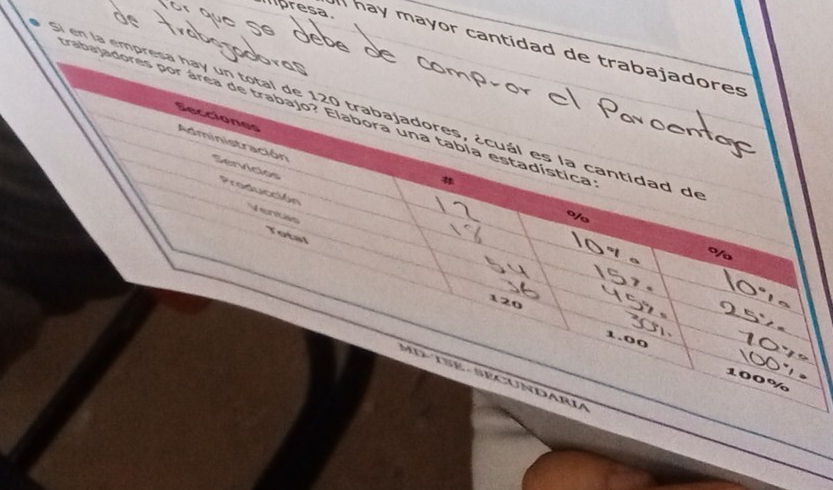 hay mayor cantidad de trabajadores
mpresa.
Por que se debe de comprar el Parcentage
de trabajadores
• Si en la empresa hay un total de 120 trabajadores, ¿cuál es la cantidad de
trabajadores por área de trabajo? Elabora una tabla estadística:
Secciones # % %
Administración 12 10% 10%
Servicios 18 15% 25%
Producción 54 45% 70%
Ventas 36 30% 100%
Total 120 1.00 100%
MD-TSE. SECUNDARIA